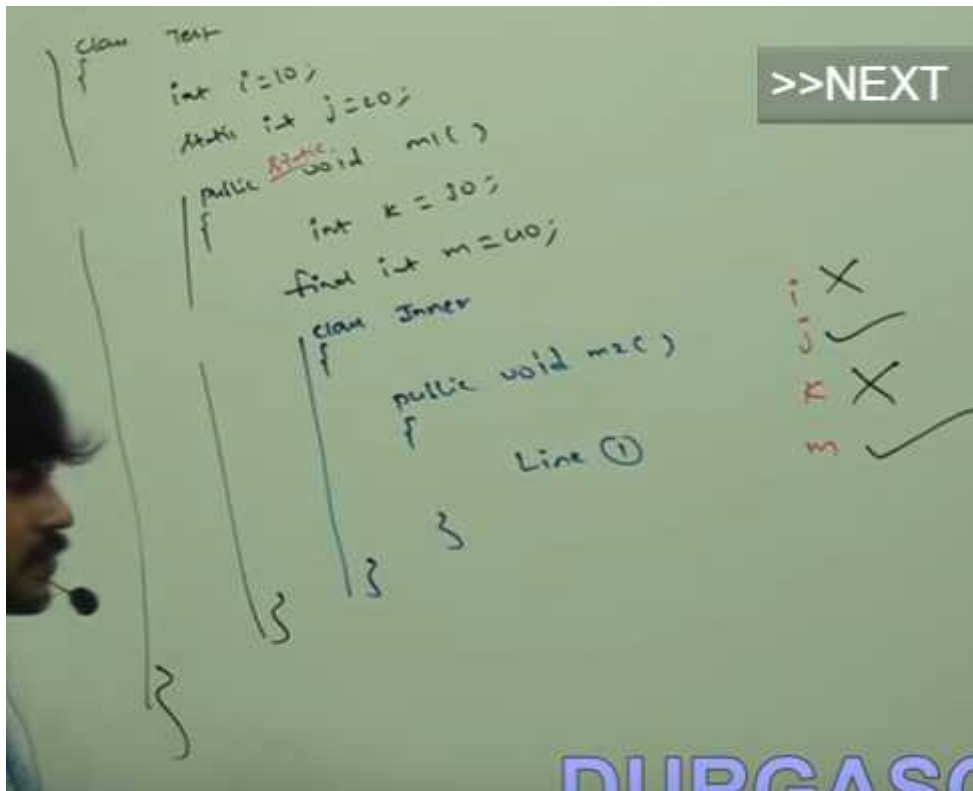 class Test
{
int i=10;
static int j=20;
public static void m1( )
{
int k = 30;
final int m = 40;
class Inner
{
public void m2( )
{
Line ①
}
}
}
}
i X
j ✓
k X
m ✓
>>NEXT
DURGASO